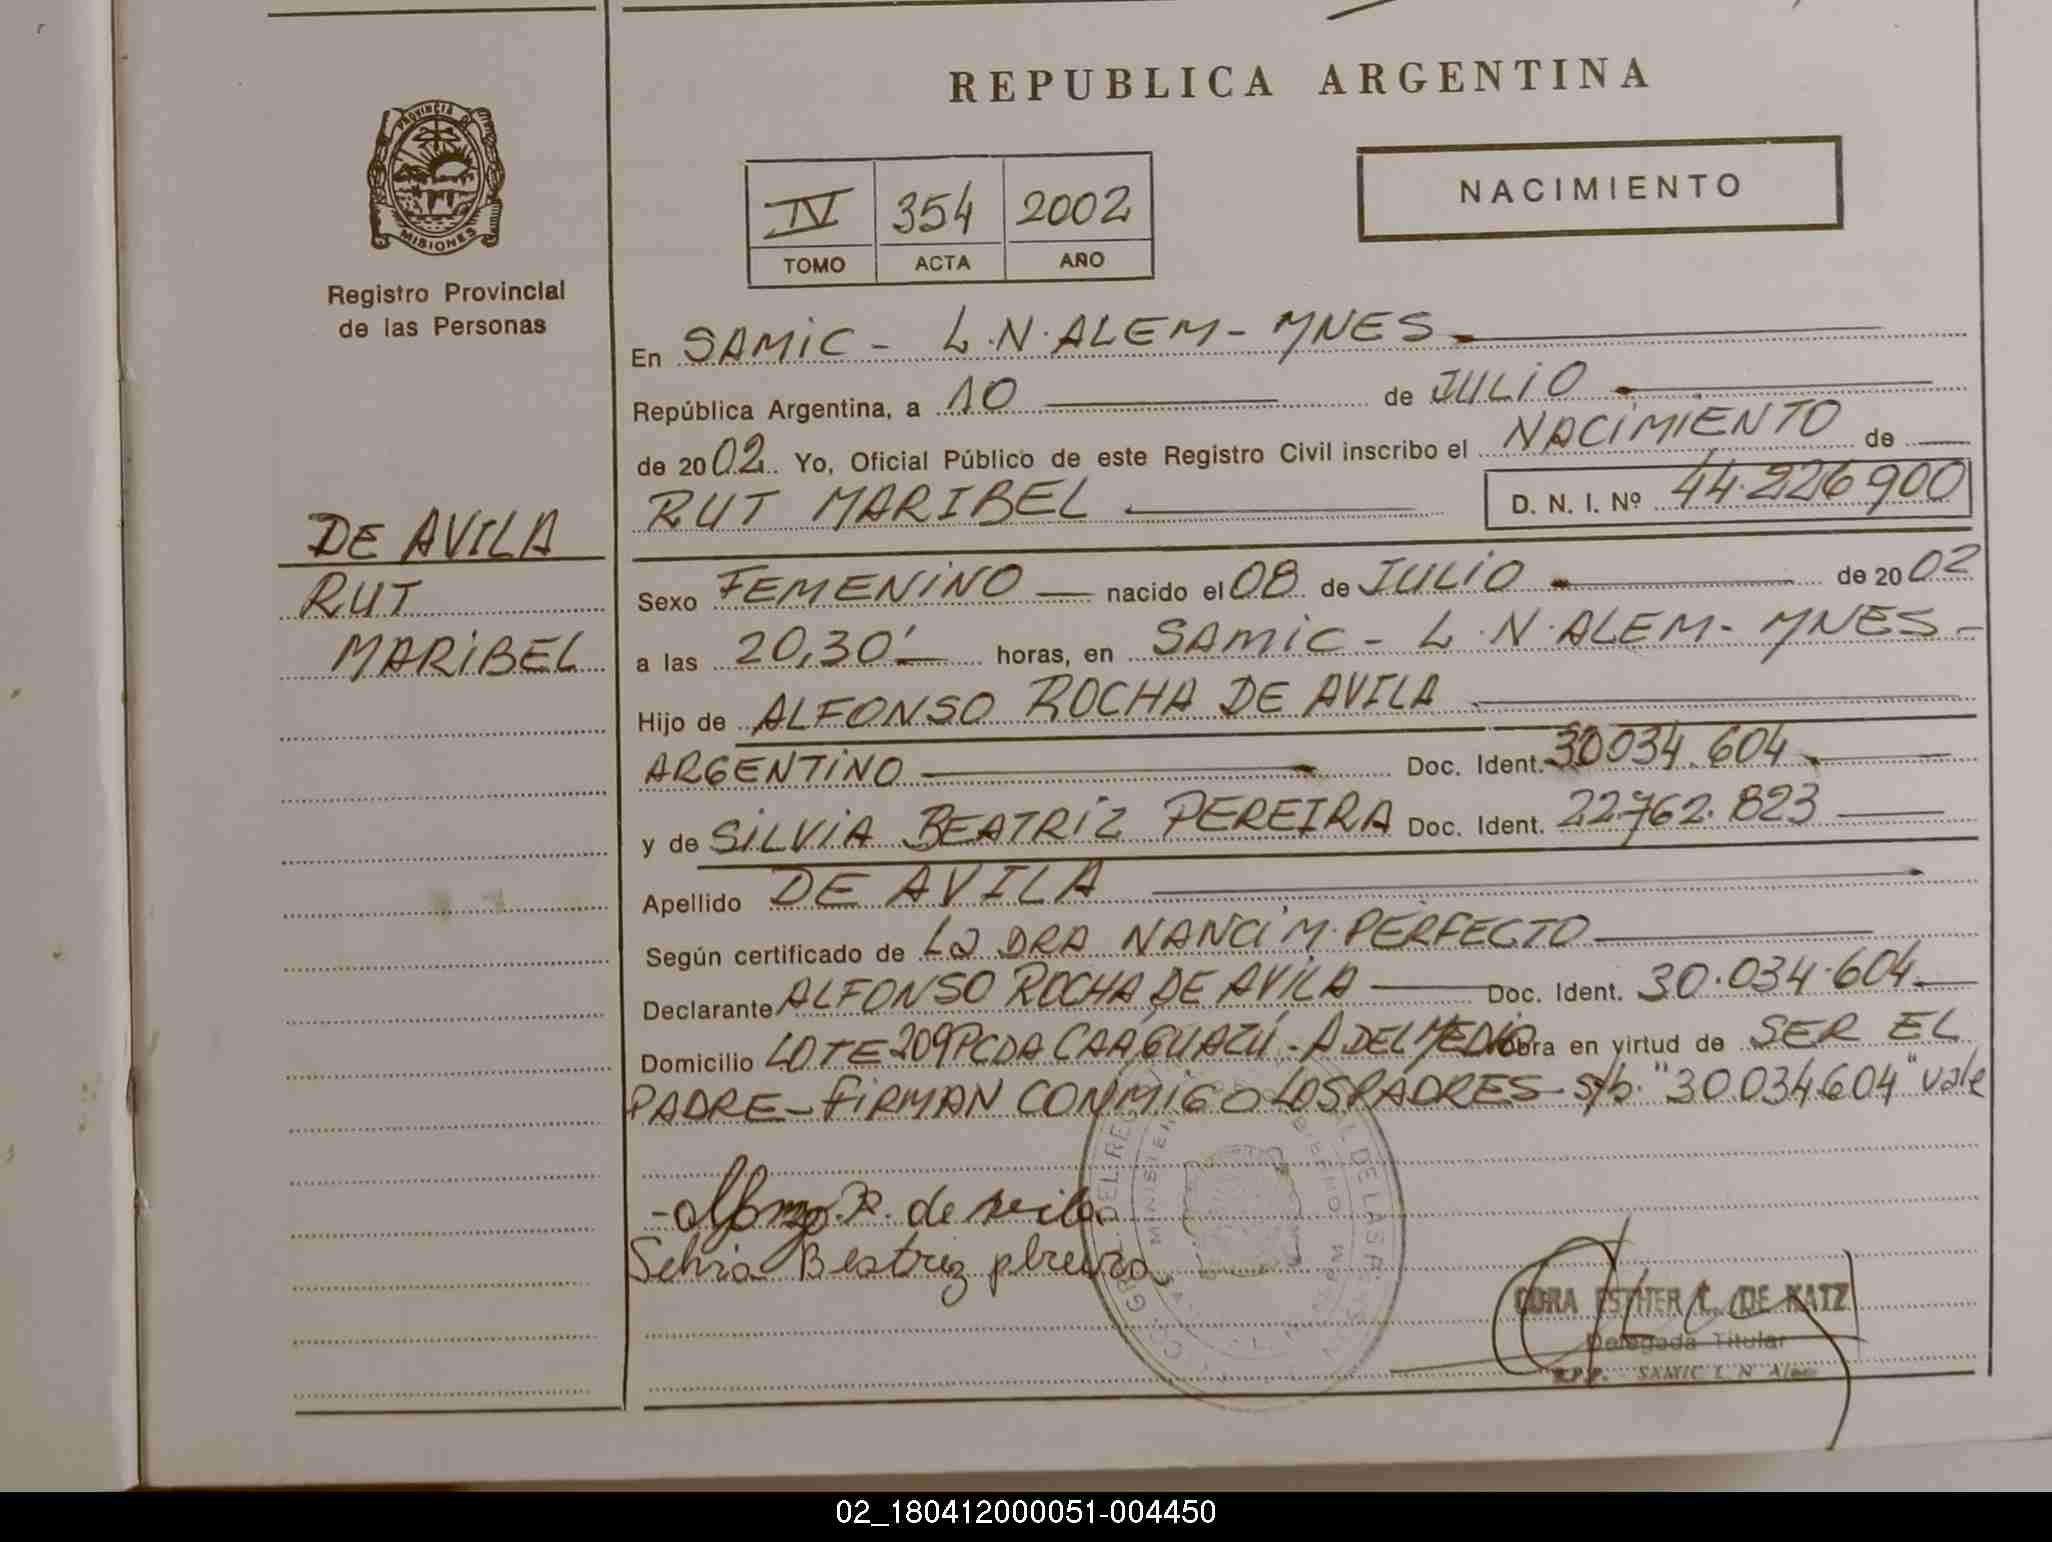 REPUBLICA ARGENTINA
PROVINCIA DE
MISIONES
Registro Provincial
de las Personas
IV 354 2002
TOMO ACTA AÑO
NACIMIENTO
DE AVILA
RUT
MARIBEL
En SAMIC - L.N.ALEM - MNES
República Argentina, a 10 de JULIO
de 2002 Yo, Oficial Público de este Registro Civil inscribo el NACIMIENTO de
RUT MARIBEL D. N. I. Nº 44.226900
Sexo FEMENINO nacido el 08 de JULIO de 2002
a las 20,30' horas, en SAMIC - L.N.ALEM - MNES -
Hijo de ALFONSO ROCHA DE AVILA
ARGENTINO Doc. Ident. 30034.604
y de SILVIA BEATRIZ PEREIRA Doc. Ident. 22762.823
Apellido DE AVILA
Según certificado de La DRA NANCI M. PERFECTO
Declarante ALFONSO ROCHA DE AVILA Doc. Ident. 30.034.604
Domicilio LOTE 209 PCDA CAAGUAZÚ - A DEL MEDIO obra en virtud de SER EL
PADRE - FIRMAN CONMIGO LOS PADRES - s/b. "30.034.604" vale
Alfonso R. de Avila
Silvia Beatriz pereira
CORA ESTHER C. DE KATZ
Delegada Titular
R.P.P. SAMIC L. N Alem
02_180412000051-004450